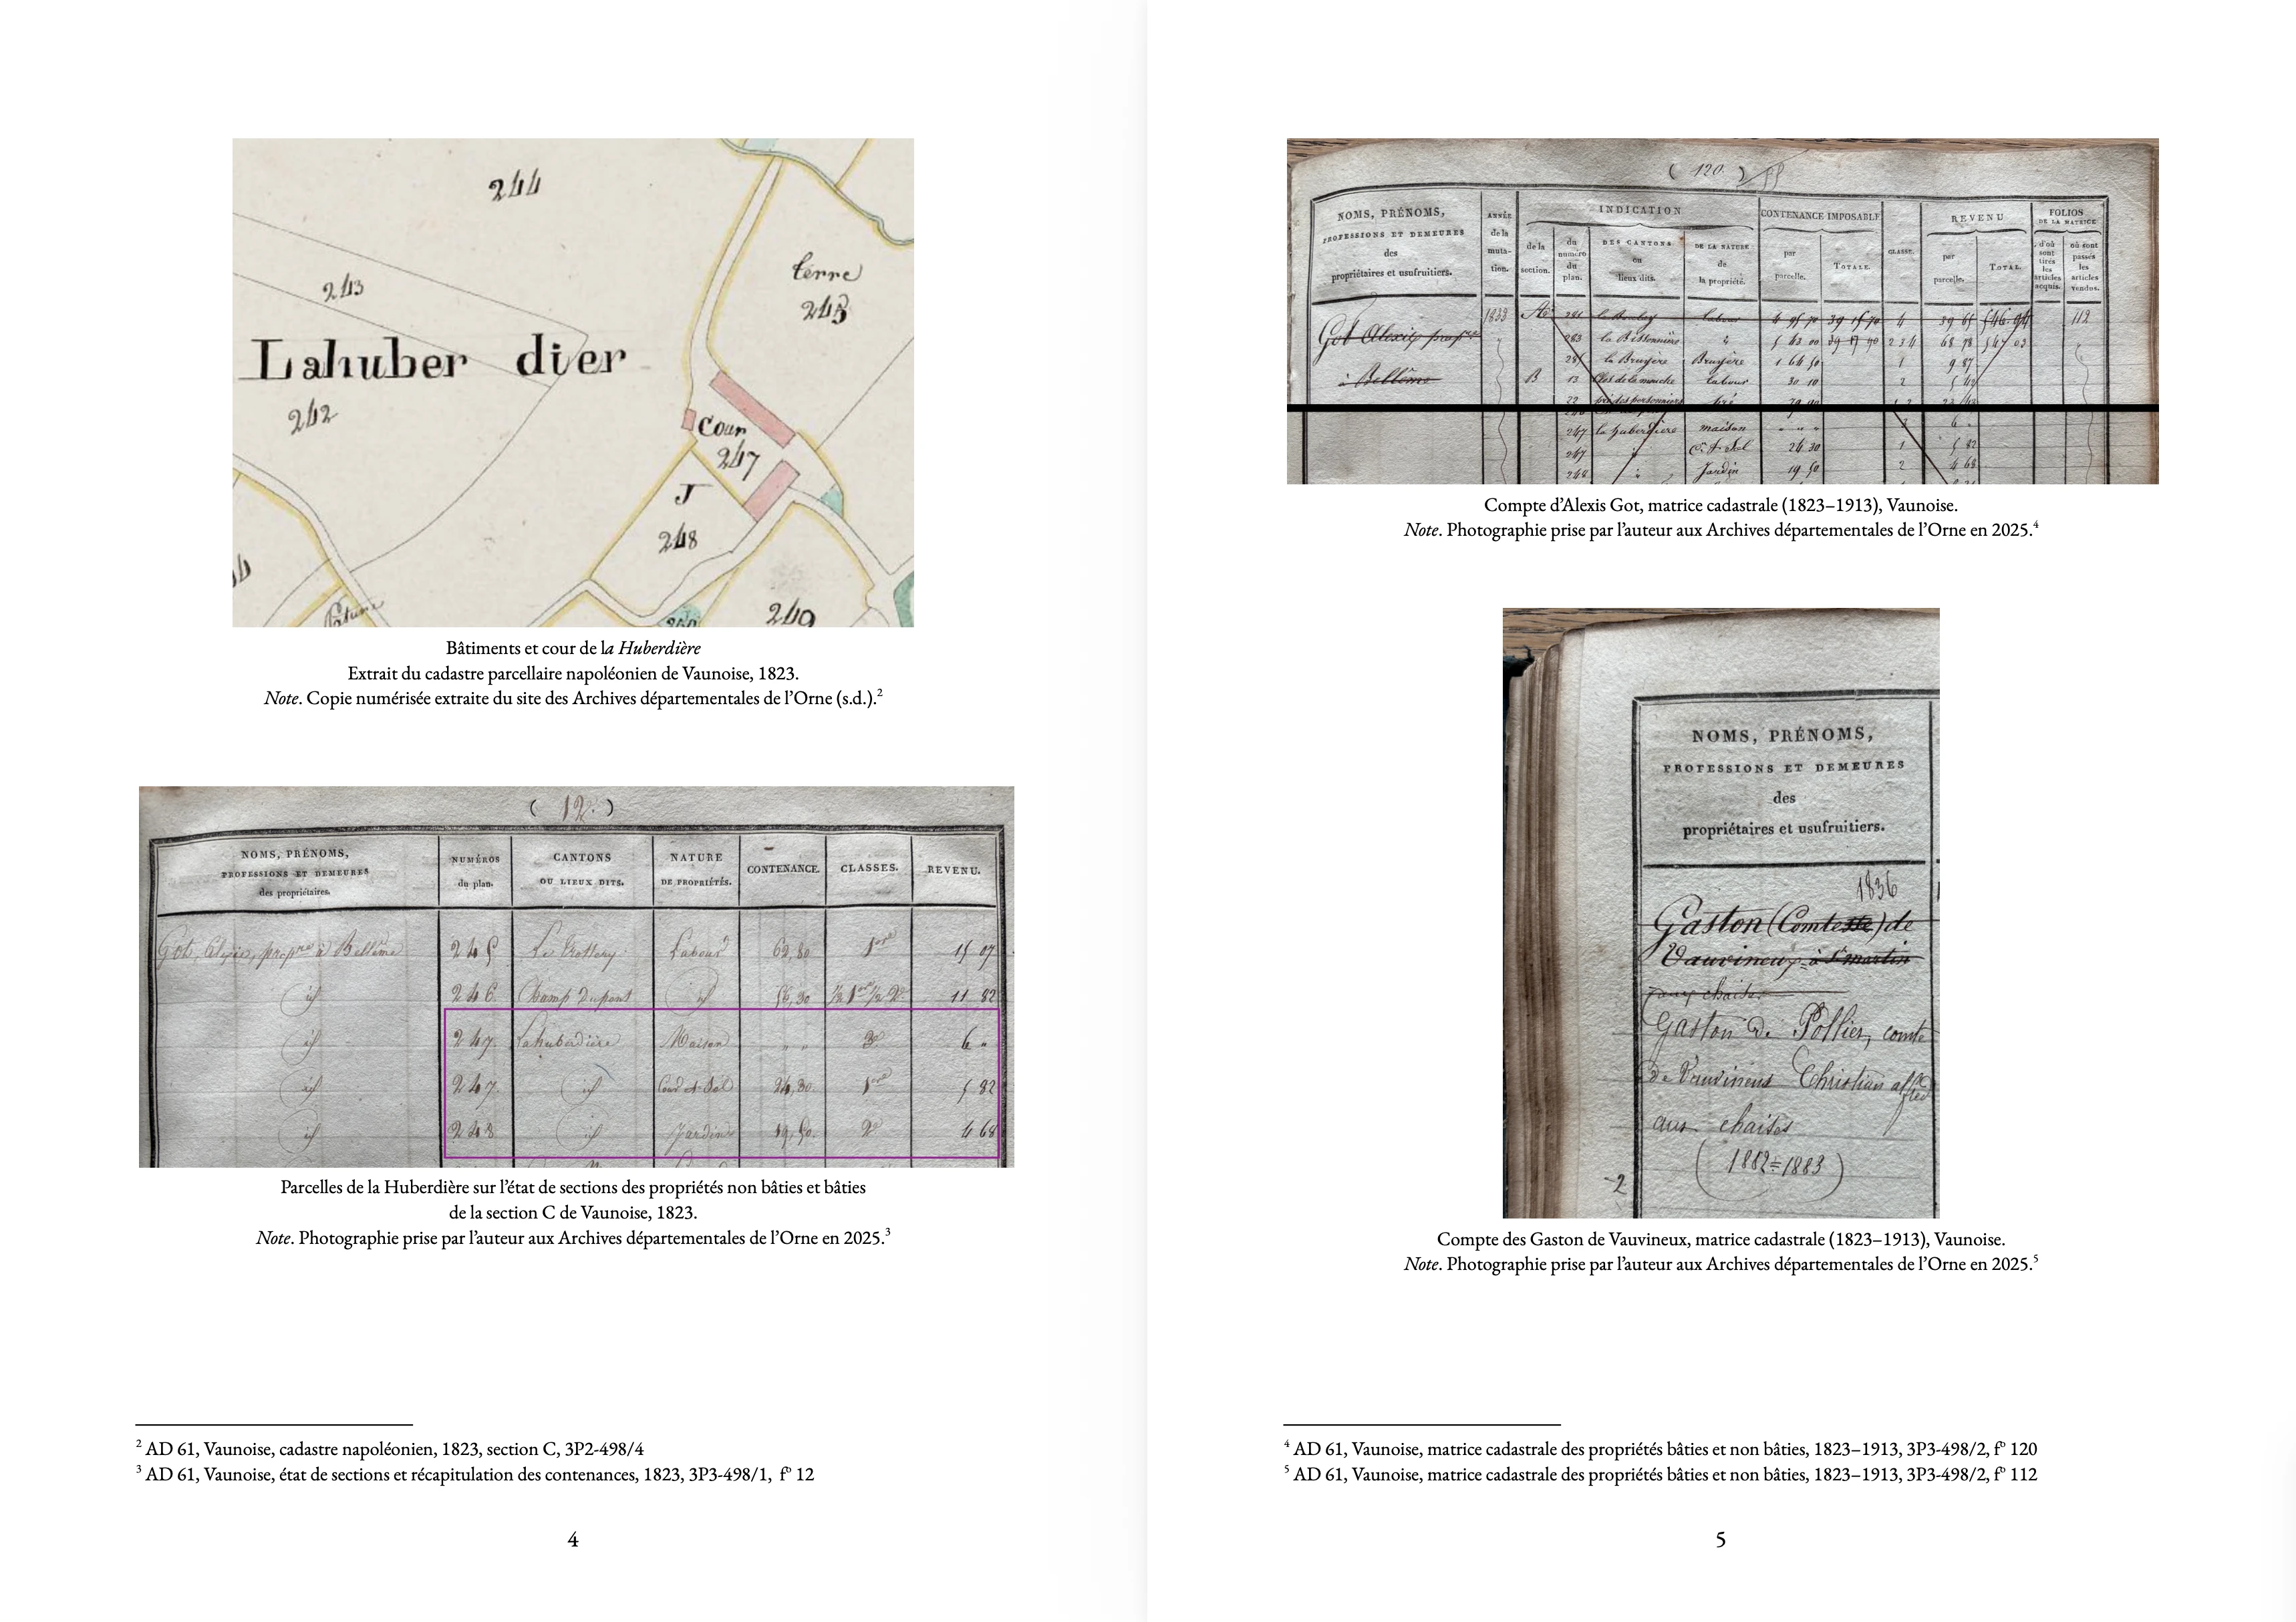 244
243
terre
245
Lahuber dier
242
Cour
247
J
248
249
Pature
260
Bâtiments et cour de la Huberdière
Extrait du cadastre parcellaire napoléonien de Vaunoise, 1823.
Note. Copie numérisée extraite du site des Archives départementales de l’Orne (s.d.).2
( 12. )
NOMS, PRÉNOMS, PROFESSIONS ET DEMEURES des propriétaires. NUMÉROS du plan. CANTONS OU LIEUX DITS. NATURE DE PROPRIÉTÉS. CONTENANCE. CLASSES. REVENU.
Got, Alexis, propre à Bellême 245 Labour 62,80 1ere 15 07
id 246 Champ Dupont id 56,30 1/2 1ere 1/2 2e 11 82
id 247. Lahuberdière Maison " " 3e 6 "
id 247. id Cour et Sol 24,30. 1ere 5 82
id 248 id Jardin 19,50. 2e 4 68
Parcelles de la Huberdière sur l’état de sections des propriétés non bâties et bâties
de la section C de Vaunoise, 1823.
Note. Photographie prise par l’auteur aux Archives départementales de l’Orne en 2025.3
2 AD 61, Vaunoise, cadastre napoléonien, 1823, section C, 3P2-498/4
3 AD 61, Vaunoise, état de sections et récapitulation des contenances, 1823, 3P3-498/1, fº 12
4
( 120. )
NOMS, PRÉNOMS, PROFESSIONS ET DEMEURES des propriétaires et usufruitiers. ANNÉE de la muta-tion. INDICATION de la section. du numéro du plan. DES CANTONS ou lieux dits. DE LA NATURE de la propriété. CONTENANCE IMPOSABLE par parcelle. TOTALE. CLASSE. REVENU par parcelle. TOTAL. FOLIOS DE LA MATRICE d'où sont tirés les articles acquis. où sont passés les articles vendus.
Got Alexis propre 1833 A 281 labour 4 39 65 546.94 112
283 la Bissonnière " 5 63 00 2 3 4 68 78
à Bellême 285 la Bruyère Bruyère 1 64 50 1 9 87
B 13 Clos de la mouche labour 30 10 2 5 42
22 pré des personniers pré
247 la huberdière maison " " " 6 "
247 " C. et Sol 24 30 1 5 82
248 " Jardin 19 50 2 4 68
Compte d’Alexis Got, matrice cadastrale (1823–1913), Vaunoise.
Note. Photographie prise par l’auteur aux Archives départementales de l’Orne en 2025.4
NOMS, PRÉNOMS,
PROFESSIONS ET DEMEURES
des
propriétaires et usufruitiers.
1836
Gaston (Comtesse) de
Vauvineux à St martin
aux chaises
Gaston de Pollier, comte
de Vauvineux Christian
aux chaises
(1882=1883)
2
Compte des Gaston de Vauvineux, matrice cadastrale (1823–1913), Vaunoise.
Note. Photographie prise par l’auteur aux Archives départementales de l’Orne en 2025.5
4 AD 61, Vaunoise, matrice cadastrale des propriétés bâties et non bâties, 1823–1913, 3P3-498/2, fº 120
5 AD 61, Vaunoise, matrice cadastrale des propriétés bâties et non bâties, 1823–1913, 3P3-498/2, fº 112
5